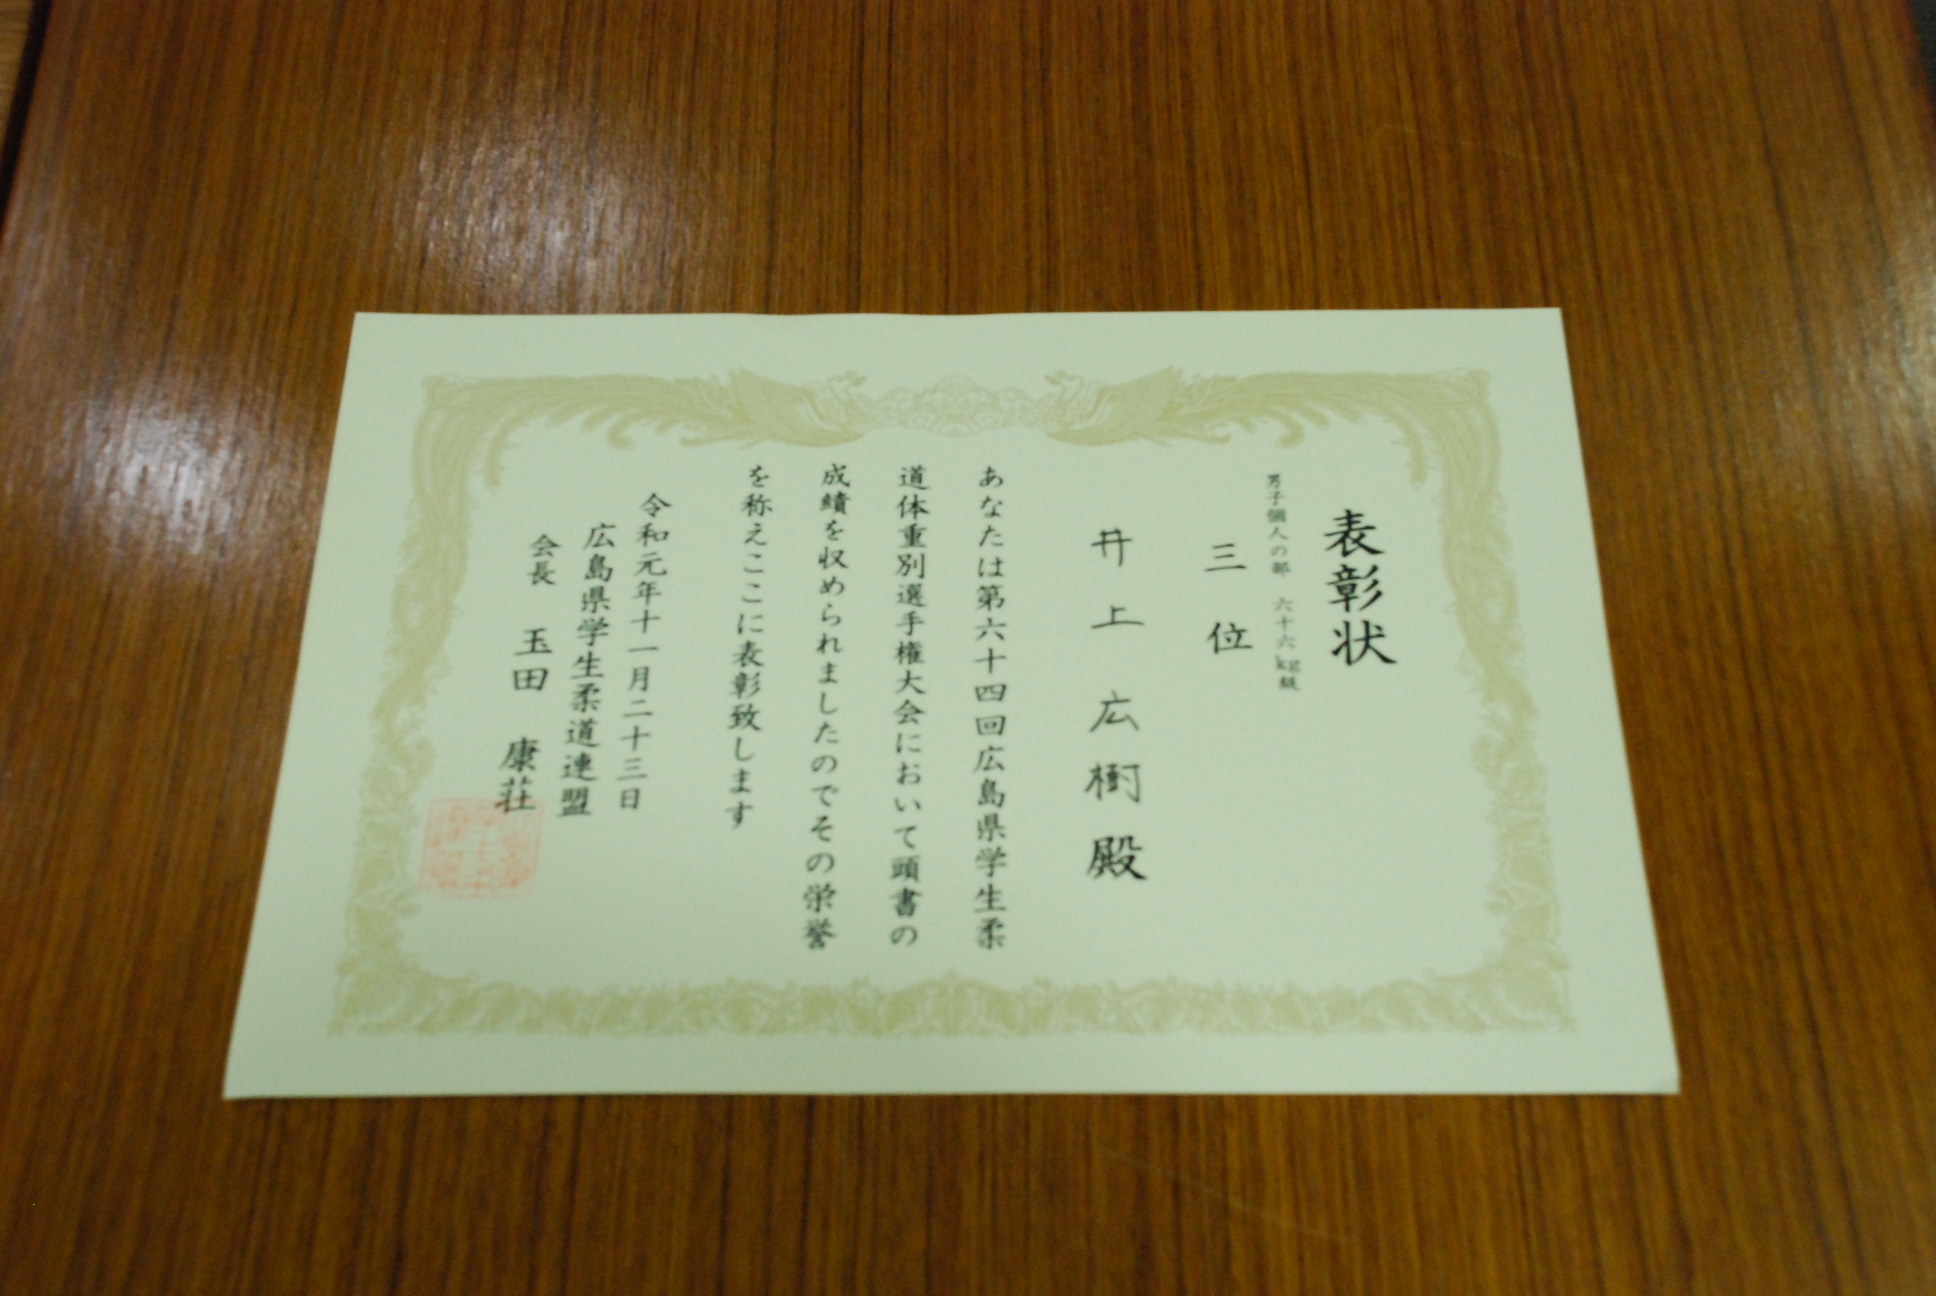 表彰状
男子個人の部 六十六kg級
三位
井上広樹殿
あなたは第六十四回広島県学生柔
道体重別選手権大会において頭書の
成績を収められましたのでその栄誉
を称えここに表彰致します
令和元年十一月二十三日
広島県学生柔道連盟
会長 玉田 康荘